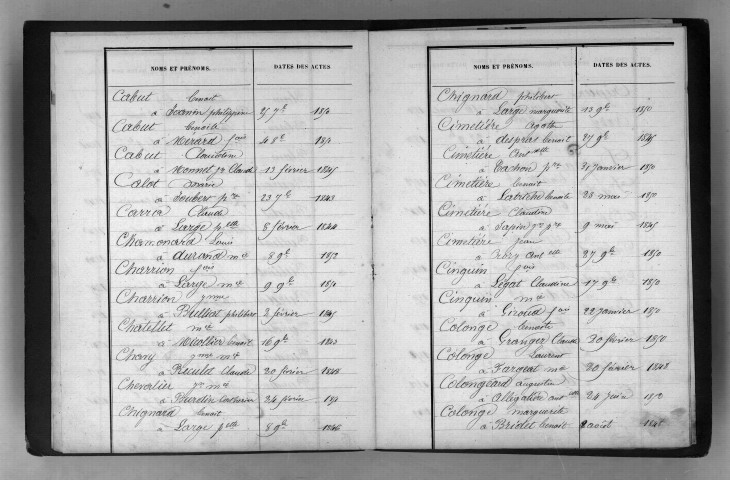 NOMS ET PRÉNOMS. DATES DES ACTES.
Cabut benoit
à Jeanin philippine 25 7e 1850
Cabut benoit
à Mérard 4 8e
Cabut Claudine
à Monnet pre Claude 13 février 1845
Calot marie
à Joubert pre 23 7e 1843
Carra Claude
à Large pette 8 février 1844
Chamonard Louis
à durand mie 8 9e 1852
Charrion fois
à Large mie 9 9e 1850
Charrion
à philibert 2 février 1845
Chatillet mie
à benoit 16 9e 1843
Chany mie
à Claude 20 février 1848
Chevalier mie
à Burdin Catherine 24 février
Chignard benoit
à Large pette 8 9e 1846
NOMS ET PRÉNOMS. DATES DES ACTES.
Chignard philibert
à Large marguerite 13 9e 1850
Cimetière agathe
à despras benoit 27 9e 1845
Cimetière antoinette
à Cachon pre 31 janvier 1850
Cémetière benoit
à Labruche benoite 28 mai 1850
Cimetière Claudine
à Sapin pre 9 mai 1845
Cimetière jean
à antette 27 9e 1850
Cinquin fois
à Légat Claudine 17 9e 1850
Cinquin mie
à Giroud 22 janvier 1850
Colonge benoite
à Granger Claude 20 février 1850
Colonge Laurent
à Fargeat mie 20 février 1848
Colongeard augustin
à Allégatière antette 24 juin 1850
Colonge marguerite
à Briolet benoit 2 août 1845